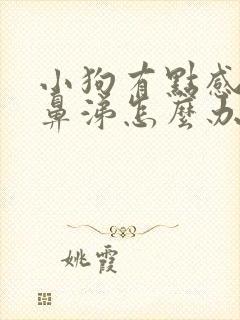 小狗有點感
鼻涕怎麼办
姚霞